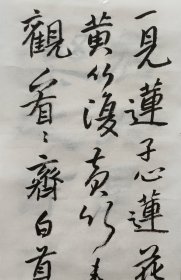 一見蓮子心蓮花
黄竹復黄竹
觀看〻齊白首